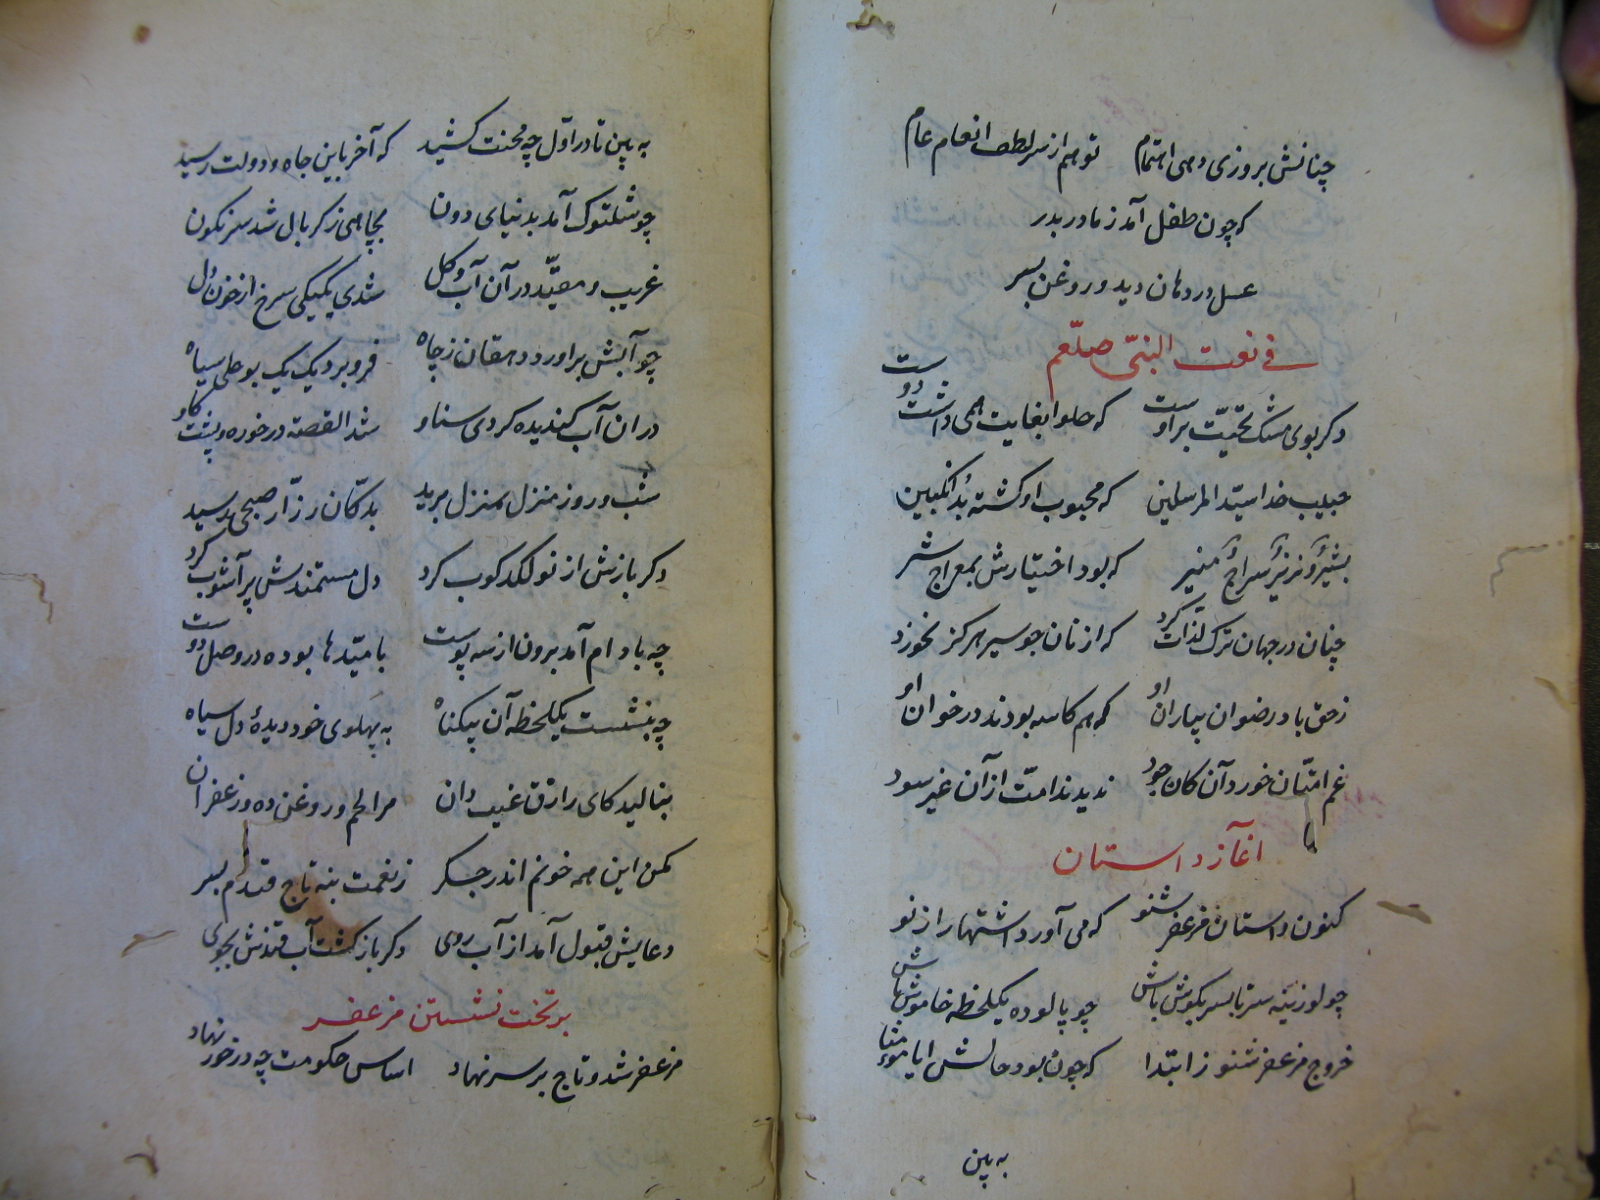 چنانش بروزی دهی اهتمام توهم از سر لطف انعام عام
که چون طفل آمد ز مادر بدر
عسل در دهان دید و روغن بسر
فی نعت النبی صلعم
دگر بوی مشک تحیّت براوست که حلوا بغایت همی داشت دوست
حبیب خدا سیّد المرسلین که محبوب او گشته بُد انگبین
بشیرٌ و نذیرٌ سراجٌ منیر که بود اختیارش بمعراج شیر
چنان در جهان ترک لذّات کرد که از نان جو سیر هرگز نخورد
ز حق باد رضوان بیاران او که هم کاسه بودند در خوان او
غم امتّان خورد آن کان جود ندید ندامت از آن غیر سود
آغاز داستان
کنون داستان مزعفر شنو که می آورد اشتها را ز نو
چو لوزینه سر تا بسر گوش باش چو پالوده یکلحظه خاموش باش
خروج مزعفر شنو ز ابتدا که چون بود حالش ایا مؤمنا
به بین
به بین تا در اوّل چه محنت کشید که آخر باین جاه و دولت رسید
چو شلتوک آمد بدنیای دون بچاهی ز کربال شد سرنگون
غریب و مقیّد در آن آب و گل شدی یکیکی سرخ از خون دل
چو آبش براورد دهقان ز چاه فرو برد یک یک بوحلی سیاه
در ان آب گندیده کردی سناو شد القصه در خورد و پشت گاو
شب و روز منزل بمنزل برید بدکّان رزّاز صبحی رسید
دگر بازش از نو لگدکوب کرد دل مستمندش پر آشوب کرد
چه بادام آمد برون از سه پوست بامیّدها بوده در وصل دوست
چه بنشست یکلحظه آن بیگناه به پهلوی خود دیدهٔ دل سیاه
بنالید کای رازق غیب دان مرا لحم و روغن ده و زعفران
مکن این همه خونم اندر جگر ز نعمت بنه تاج قندم بسر
دعایش قبول آمد از آب روی دگر باز گشت آب قندش بجوی
بر تخت نشستن مزعفر
مزعفر شد و تاج بر سر نهاد اساس حکومت چه در خور نهاد